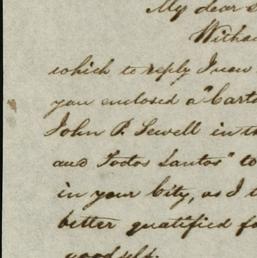 My dear S
Witho
which to reply I now
you enclosed a "Carto
John P. Sewell in th
and Todos Santos" to
in your City, as I
better qualified fo
good self.